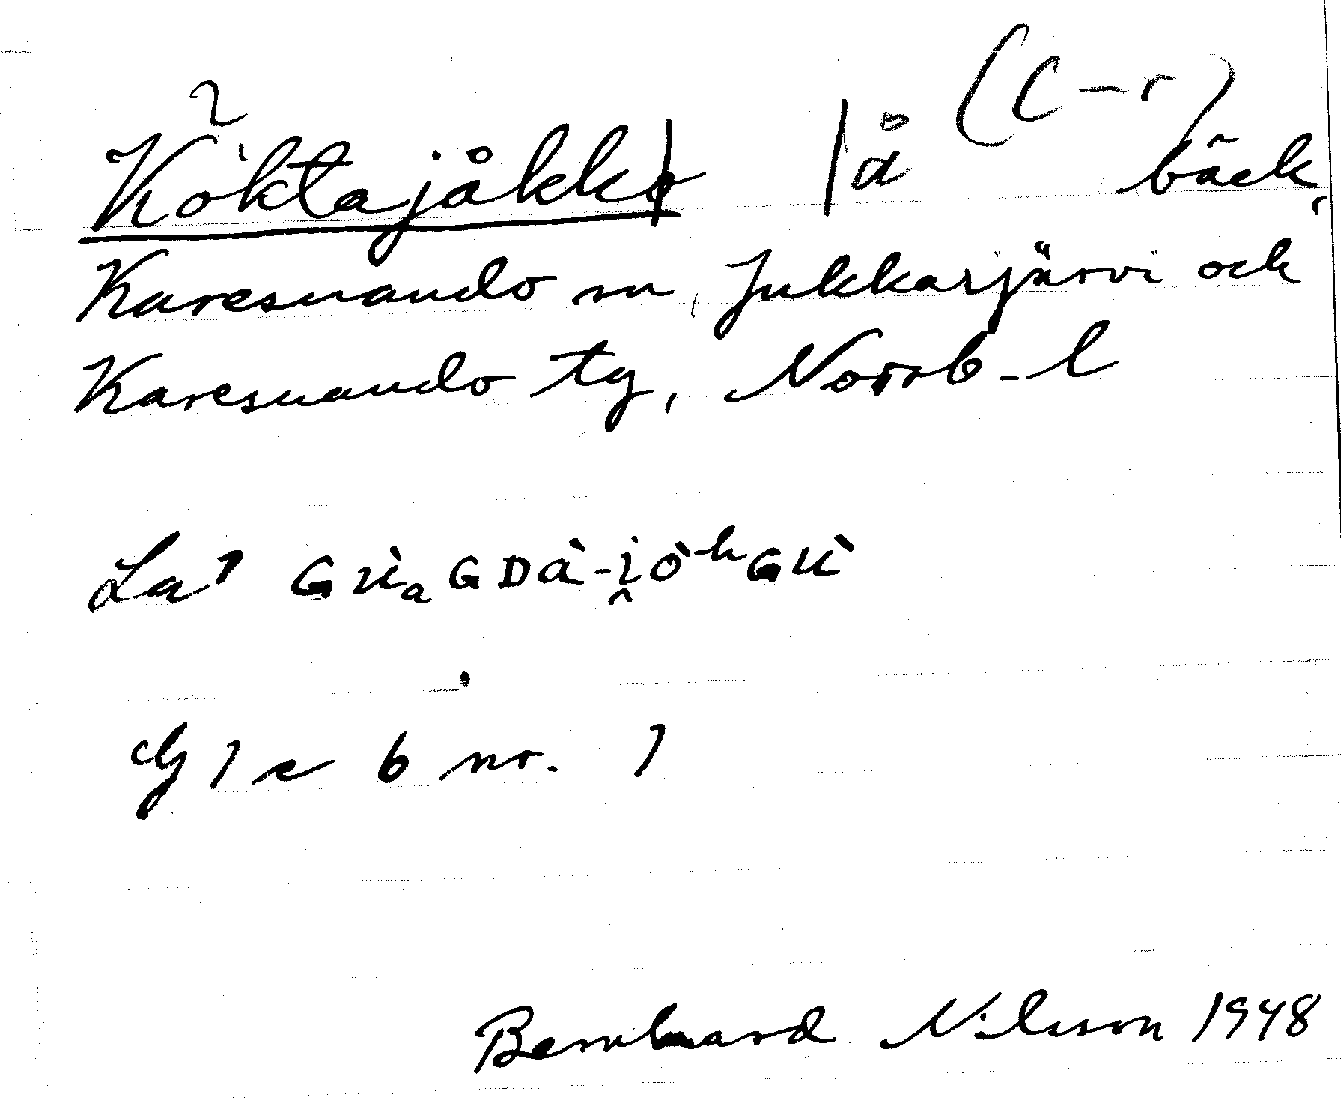 Köktajåkko |å (C-r) bäck,
Karesuando sn, Jukkasjärvi och
Karesuando tg, Norrb. l
La⁊ GU̇̀ₐGDȧ̀-i̯ȯ̀ʰGÙ
G 1 c 6 nr. 1
Bernhard Nilsson 1948